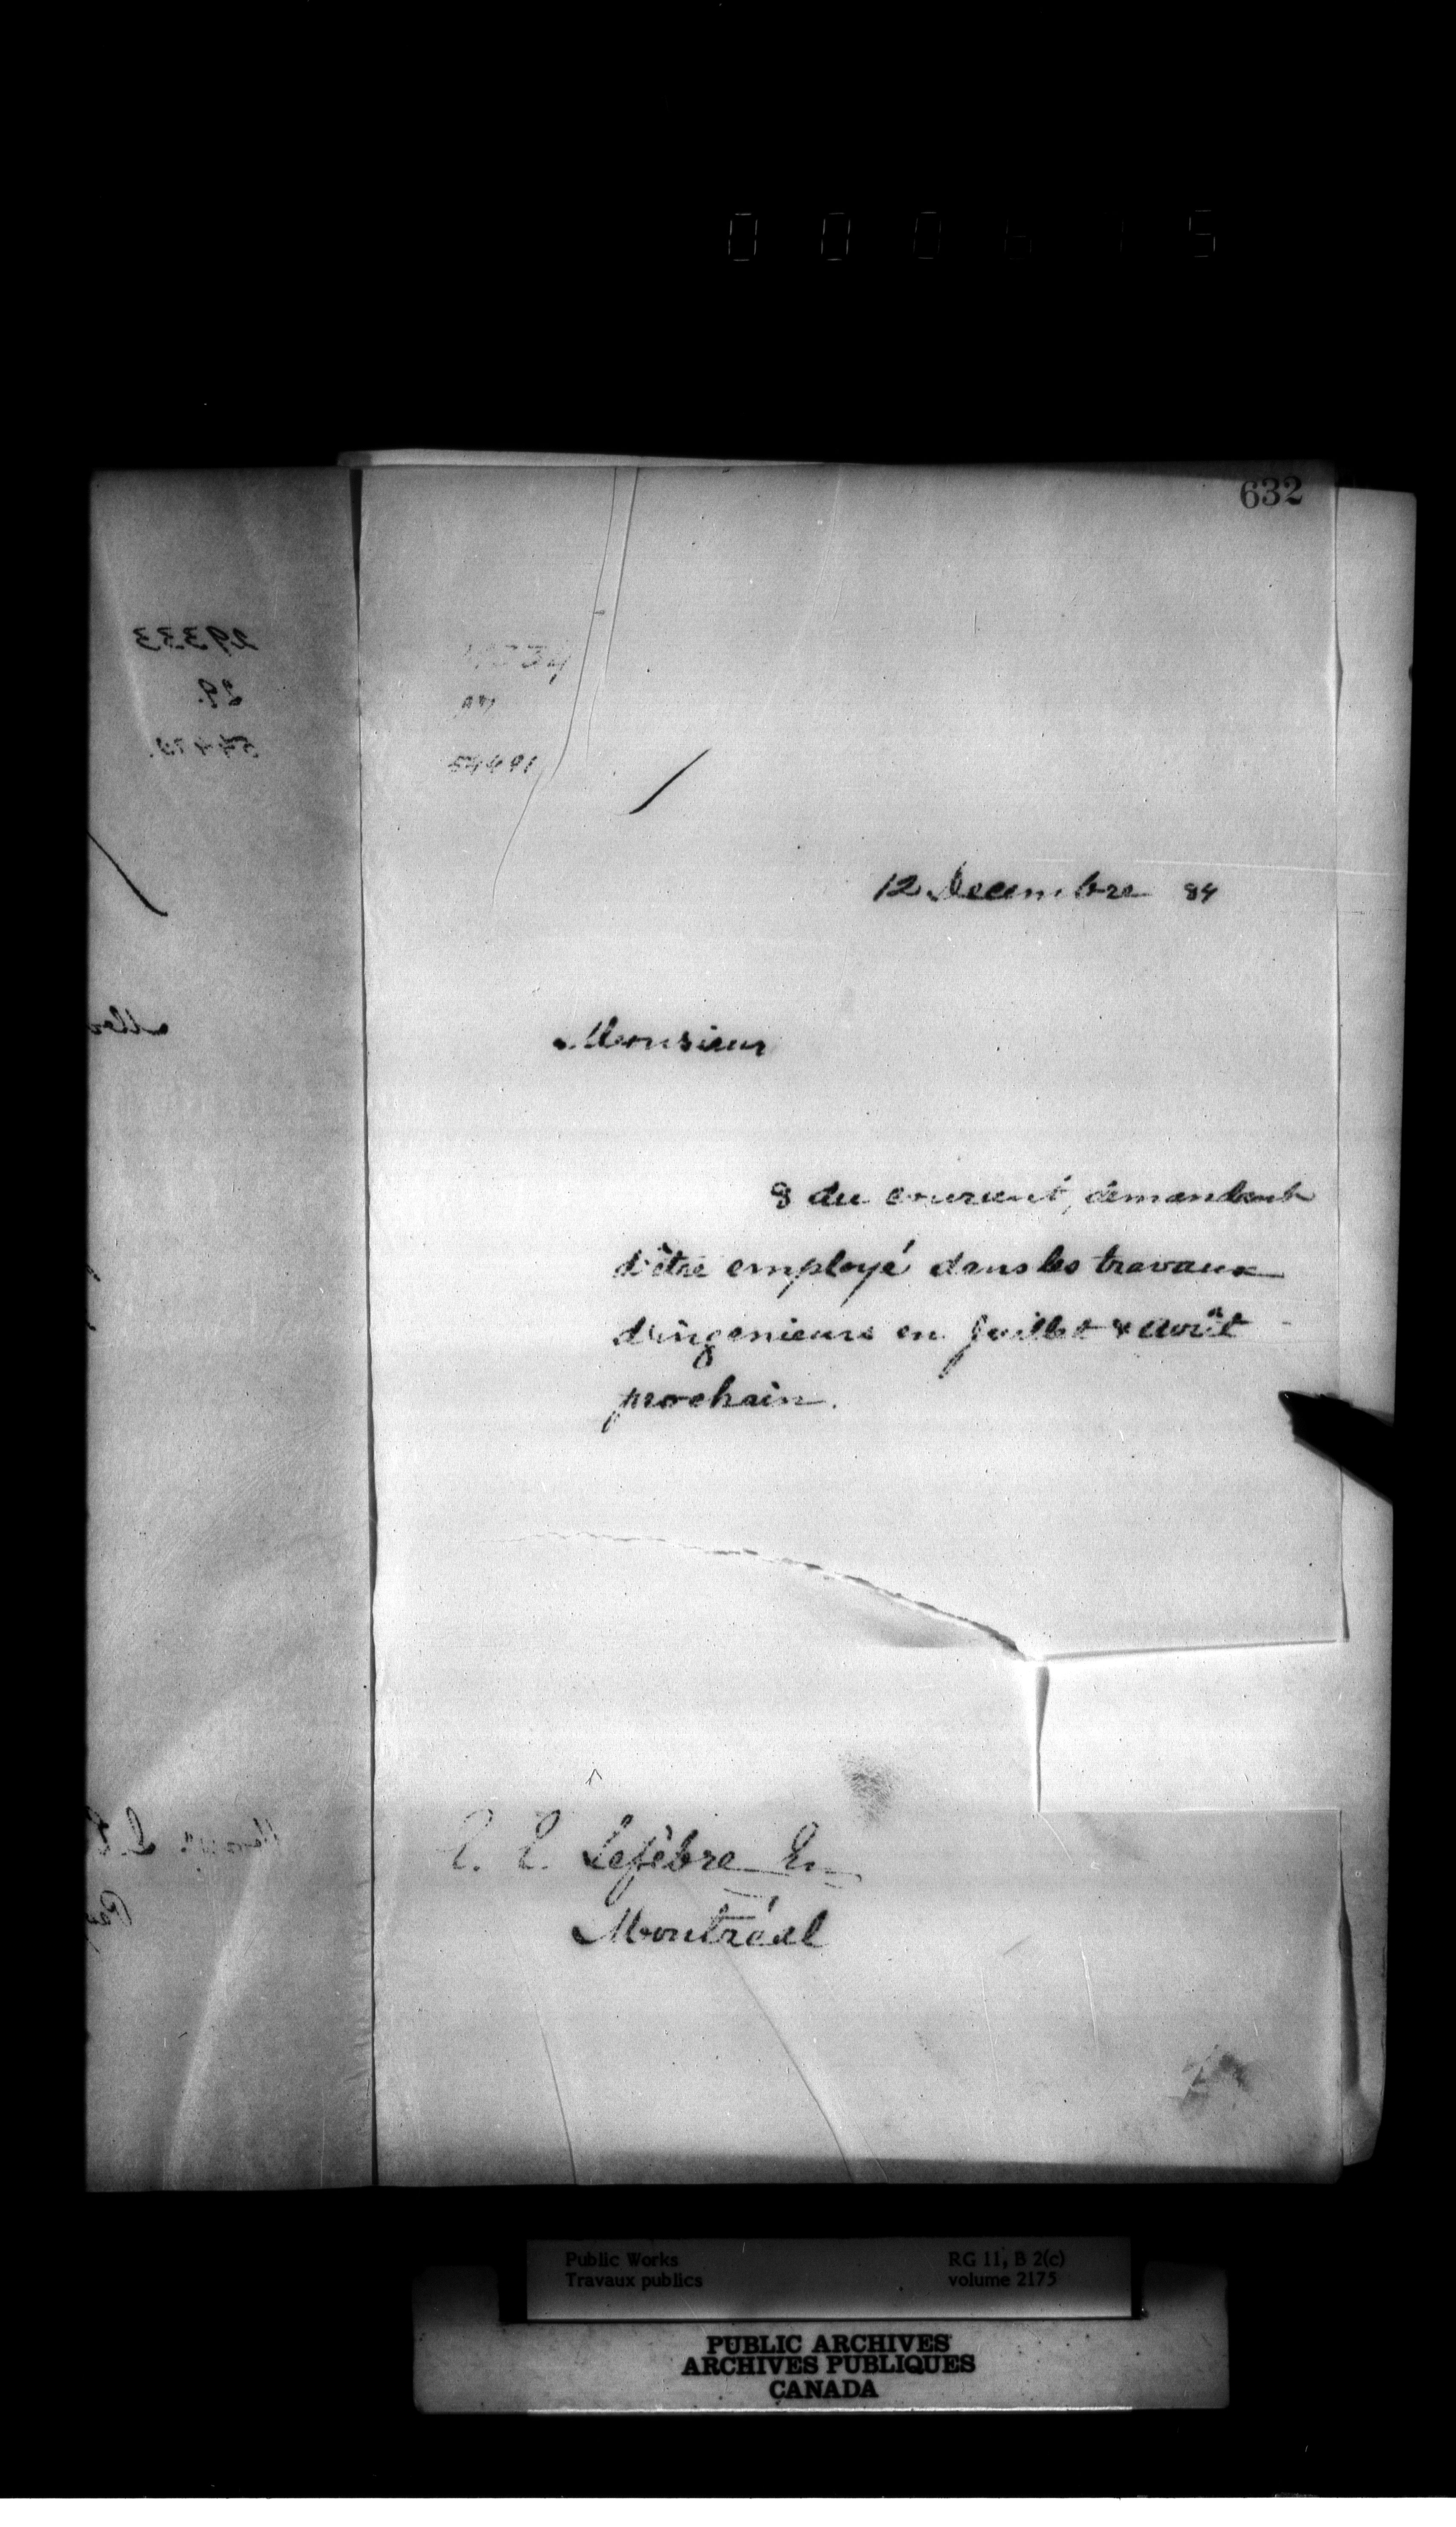 000615
632
29333
29.
54491
12 Decembre 84
Monsieur
8 du courant, demandant
d'être employé dans les travaux
d'ingenieurs en Juillet & Août
prochain.
Lefèbre
Montréal
Public Works
Travaux publics
RG 11, B 2(c)
volume 2175
PUBLIC ARCHIVES
ARCHIVES PUBLIQUES
CANADA